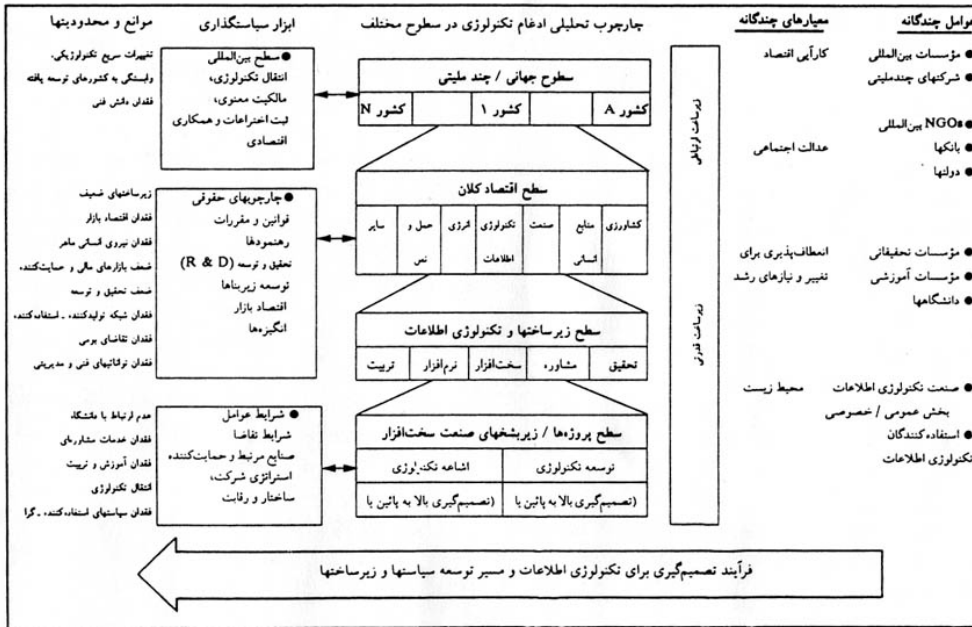 عوامل چندگانه
معیارهای چندگانه
چارچوب تحلیلی ادغام تکنولوژی در سطوح مختلف
ابزار سیاستگذاری
موانع و محدودیتها
● مؤسسات بین‌المللی
● شرکتهای چندملیتی
● NGOs بین‌المللی
● بانکها
● دولتها
● مؤسسات تحقیقاتی
● مؤسسات آموزشی
● دانشگاهها
● صنعت تکنولوژی اطلاعات
بخش عمومی / خصوصی
● استفاده‌کنندگان
تکنولوژی اطلاعات
کارآیی اقتصاد
عدالت اجتماعی
انعطاف‌پذیری برای
تغییر و نیازهای رشد
محیط زیست
زیرساخت ارتباطی
زیرساخت قدرتی
سطوح جهانی / چند ملیتی
کشور A
کشور ۱
کشور N
سطح اقتصاد کلان
کشاورزی
منابع
انسانی
صنعت
تکنولوژی
اطلاعات
انرژی
حمل و
نص
سایر
سطح زیرساختها و تکنولوژی اطلاعات
تحقیق
مشاوره
سخت‌افزار
نرم‌افزار
تربیت
سطح پروژه‌ها / زیربشخهای صنعت سخت‌افزار
توسعه تکنولوژی
اشاعه تکنولوژی
(تصمیم‌گیری بالا به پائین یا
(تصمیم‌گیری بالا به پائین یا
● سطح بین‌المللی
انتقال تکنولوژی،
مالکیت معنوی،
ثبت اختراعات و همکاری
اقتصادی
● چارچوبهای حقوقی
قوانین و مقررات
رهنمودها
تحقیق و توسعه (R & D)
توسعه زیربناها
اقتصاد بازار
انگیزه‌ها
● شرایط عوامل
شرایط تقاضا
صنایع مرتبط و حمایت‌کننده
استراتژی شرکت،
ساختار و رقابت
تغییرات سریع تکنولوژیکی،
وابستگی به کشورهای توسعه یافته
فقدان دانش فنی
زیرساختهای ضعیف
فقدان اقتصاد بازار
فقدان نیروی انسانی ماهر
ضعف بازارهای مالی و حمایت‌کننده،
ضعف تحقیق و توسعه
فقدان شبکه تولیدکننده ـ استفاده‌کننده،
فقدان تقاضای بومی
فقدان توانائیهای فنی و مدیریتی
عدم ارتباط با دانشگاه
فقدان خدمات مشاوره‌ای
فقدان آموزش و تربیت
انتقال تکنولوژی
فقدان سیاستهای استفاده‌کننده ـ گرا
فرآیند تصمیم‌گیری برای تکنولوژی اطلاعات و مسیر توسعه سیاستها و زیرساختها